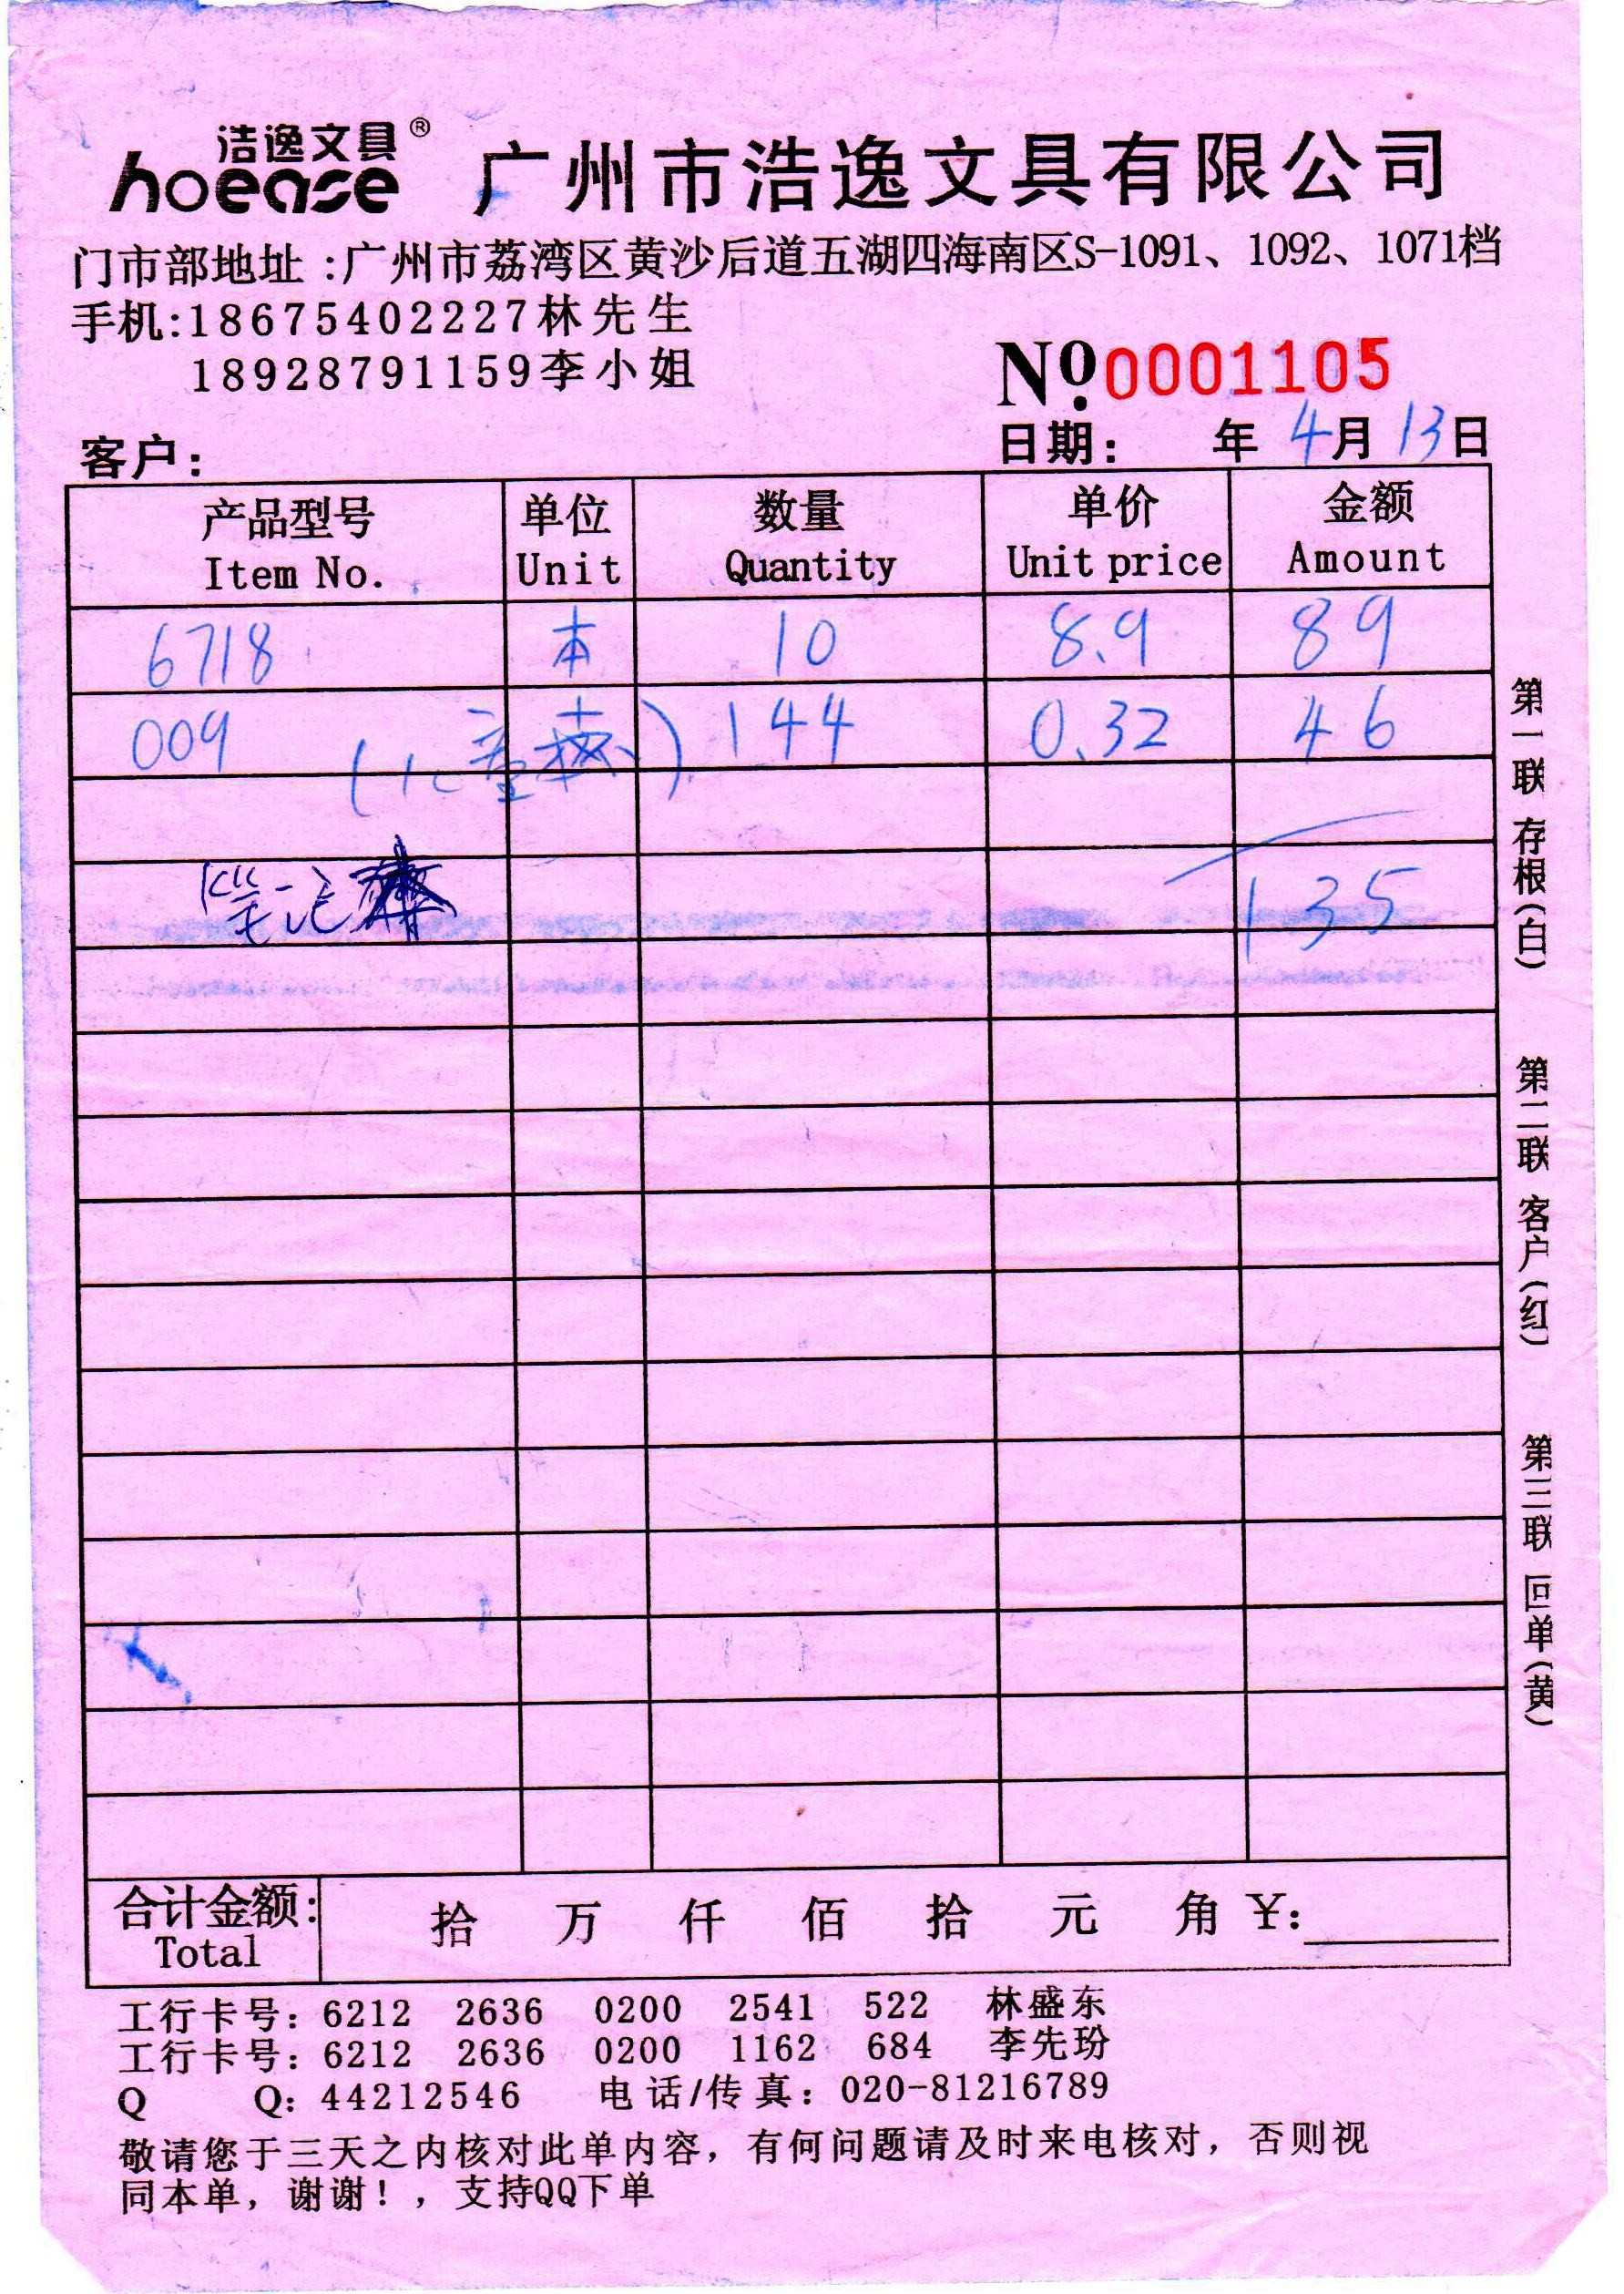 浩逸文具®
hoease
广州市浩逸文具有限公司
门市部地址:广州市荔湾区黄沙后道五湖四海南区S-1091、1092、1071档
手机:18675402227林先生
18928791159李小姐
№.0001105
客户:
日期: 年4月13日
产品型号 单位 数量 单价 金额
Item No. Unit Quantity Unit price Amount
6718 本 10 8.9 89
009 144 0.32 46
(儿童
笔记
135
合计金额: 拾 万 仟 佰 拾 元 角 ¥:
Total
工行卡号: 6212 2636 0200 2541 522 林盛东
工行卡号: 6212 2636 0200 1162 684 李先玢
Q Q: 44212546 电话/传真: 020-81216789
敬请您于三天之内核对此单内容,有何问题请及时来电核对,否则视
同本单,谢谢!,支持QQ下单
第一联 存根(白)
第二联 客户(红)
第三联 回单(黄)